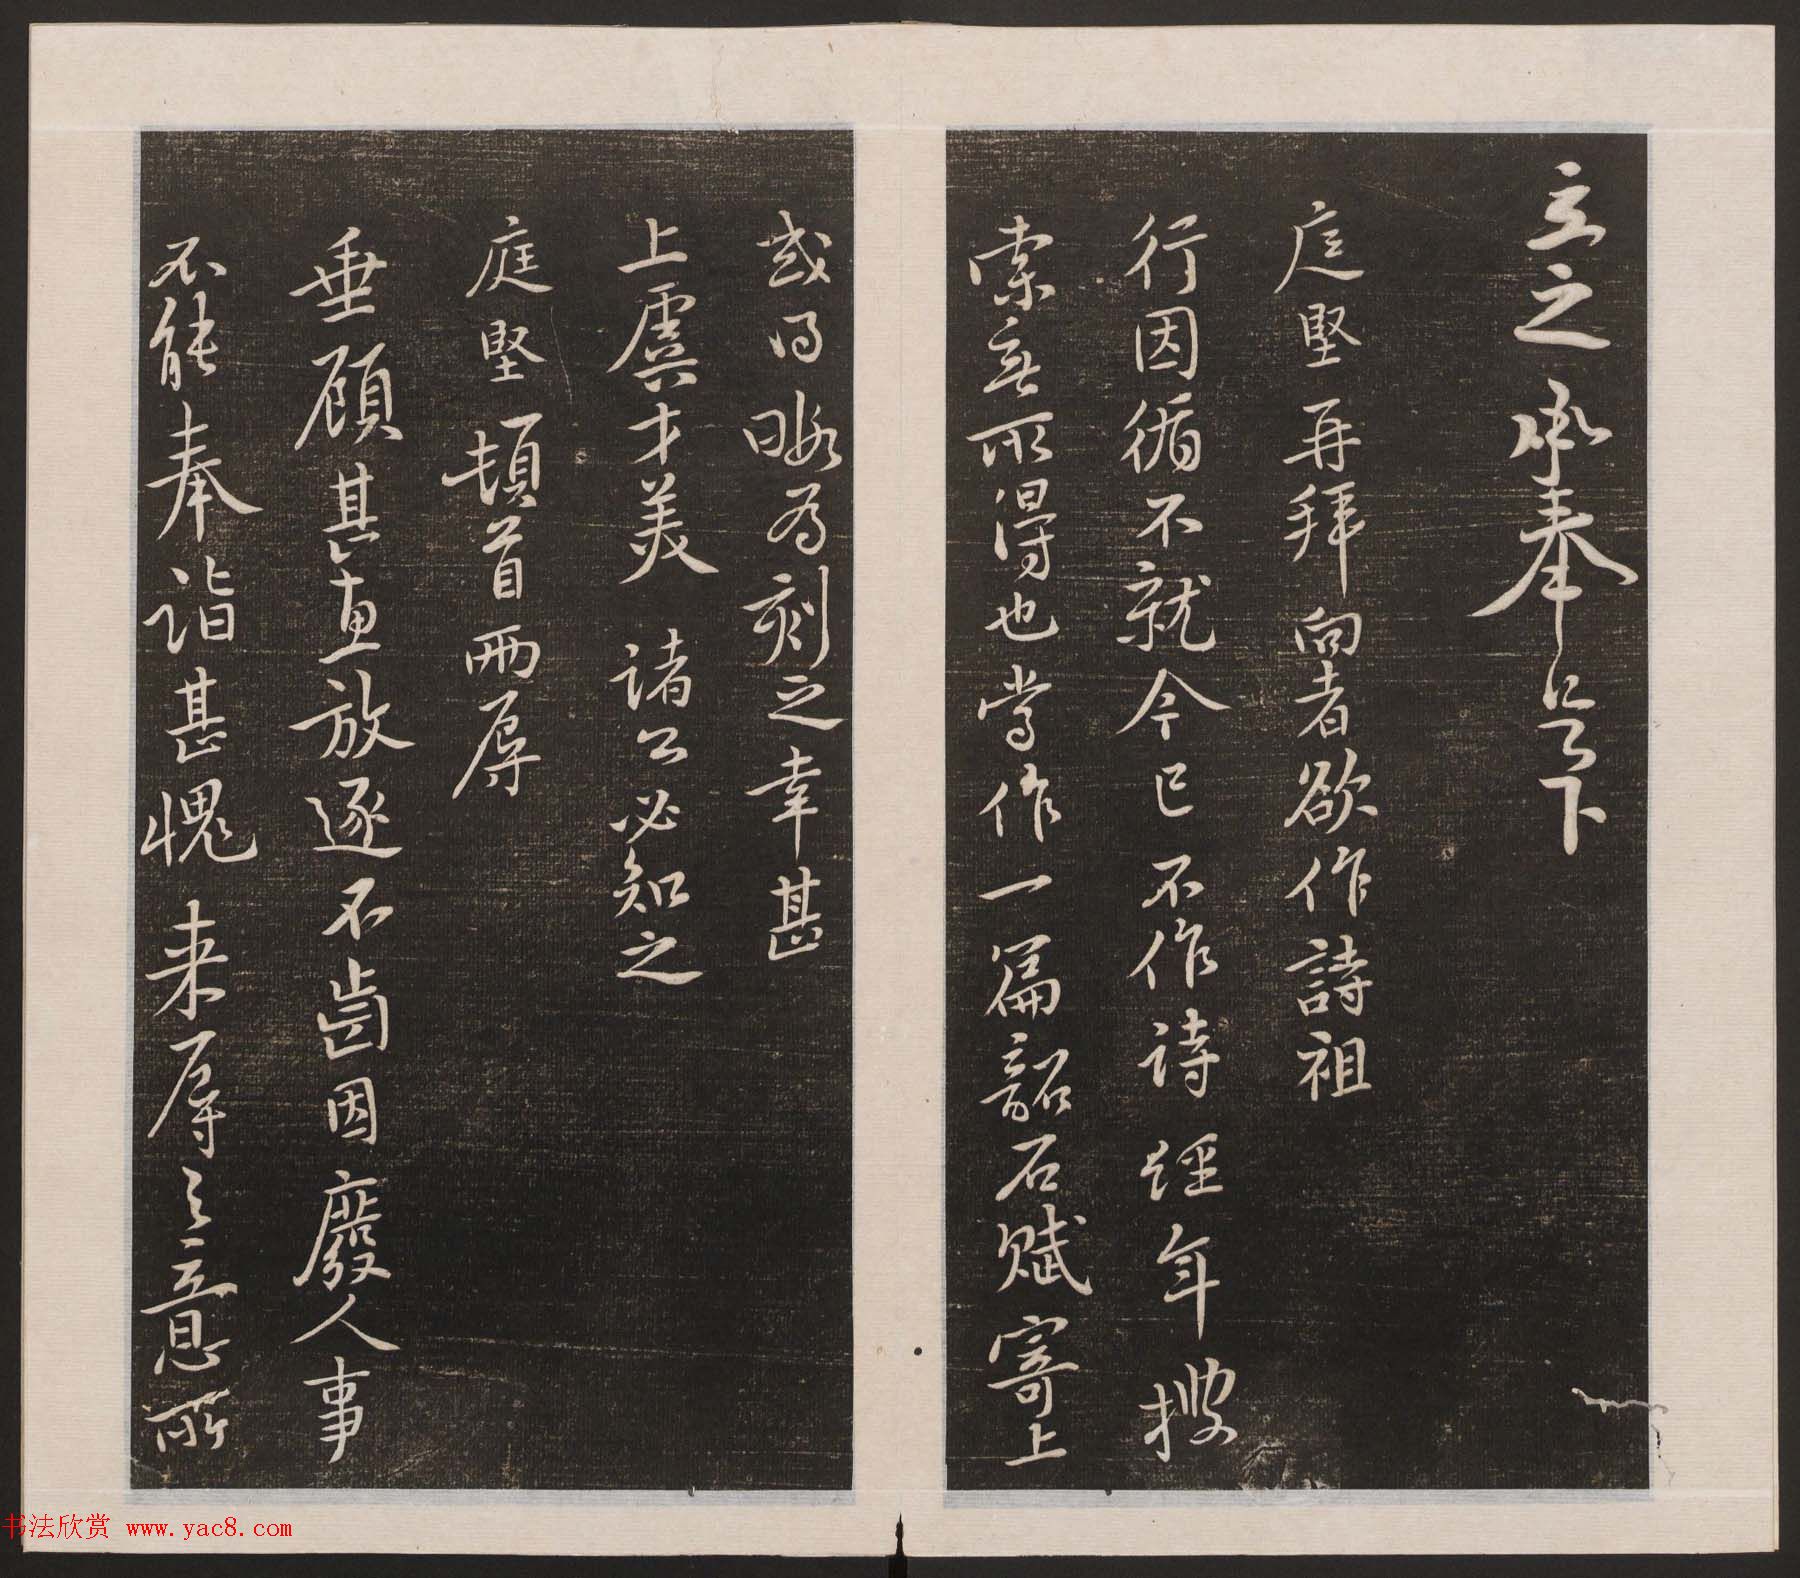 立之承奉足下
庭堅再拜向者欲作詩祖
行因循不就今已不作诗经年搜
索無所得也嘗作一篇韶石赋寄上
或得暇為刻之幸甚
上虞才美 诸公必知之
庭堅頓首两辱
垂顧其宜放逐不齒因廢人事
不能奉诣甚愧来辱之意所
书法欣赏 www.yac8.com